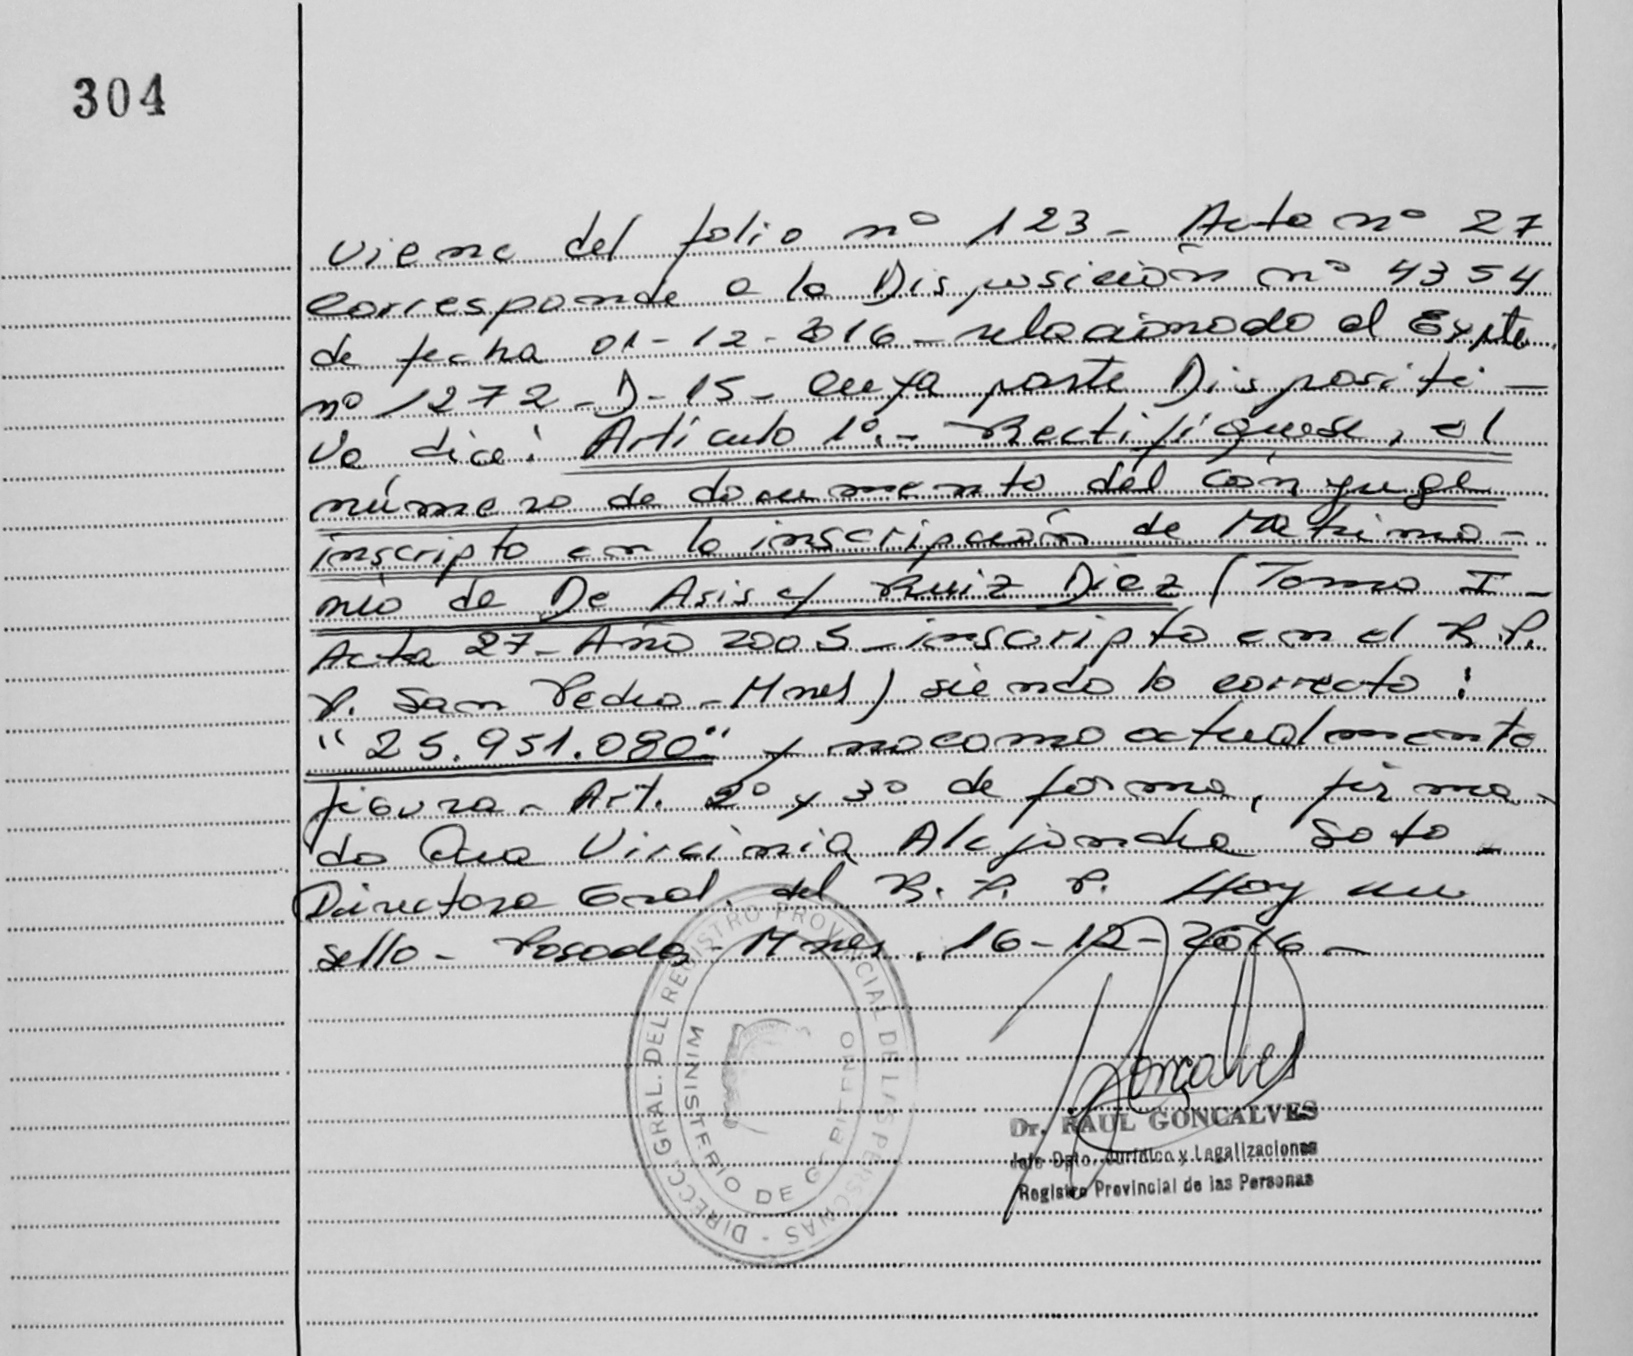 304
Viene del folio nº 123 - Acta nº 27
corresponde a la Disposición nº 4354
de fecha 01-12-2016 - relacionado al Expte.
nº 1272-D-15- cuya parte Dispositi-
va dice: Artículo 1º.- Rectifíquese, el
número de documento del cónyuge
inscripto en la inscripción de Matrimo-
nio de De Asis c/ Ruiz Diez (Tomo I -
Acta 27- Año 2005 - inscripto en el R.P.
P. San Pedro - Mnes) siendo lo correcto:
"25.951.080" y no como actualmente
figura - Art. 2º y 3º de forma, firma-
do Dra Virginia Alejandra Soto -
Directora Gral. del R.P.P. Hay un
sello - Posadas - Mnes, 16-12-2016 -
DIRECC. GRAL. DEL REGISTRO PROVINCIAL DE LAS PERSONAS -
MINISTERIO DE GOBIERNO
Goncalves
Dr. RAUL GONCALVES
Jefe Dpto. Jurídico y Legalizaciones
Registro Provincial de las Personas